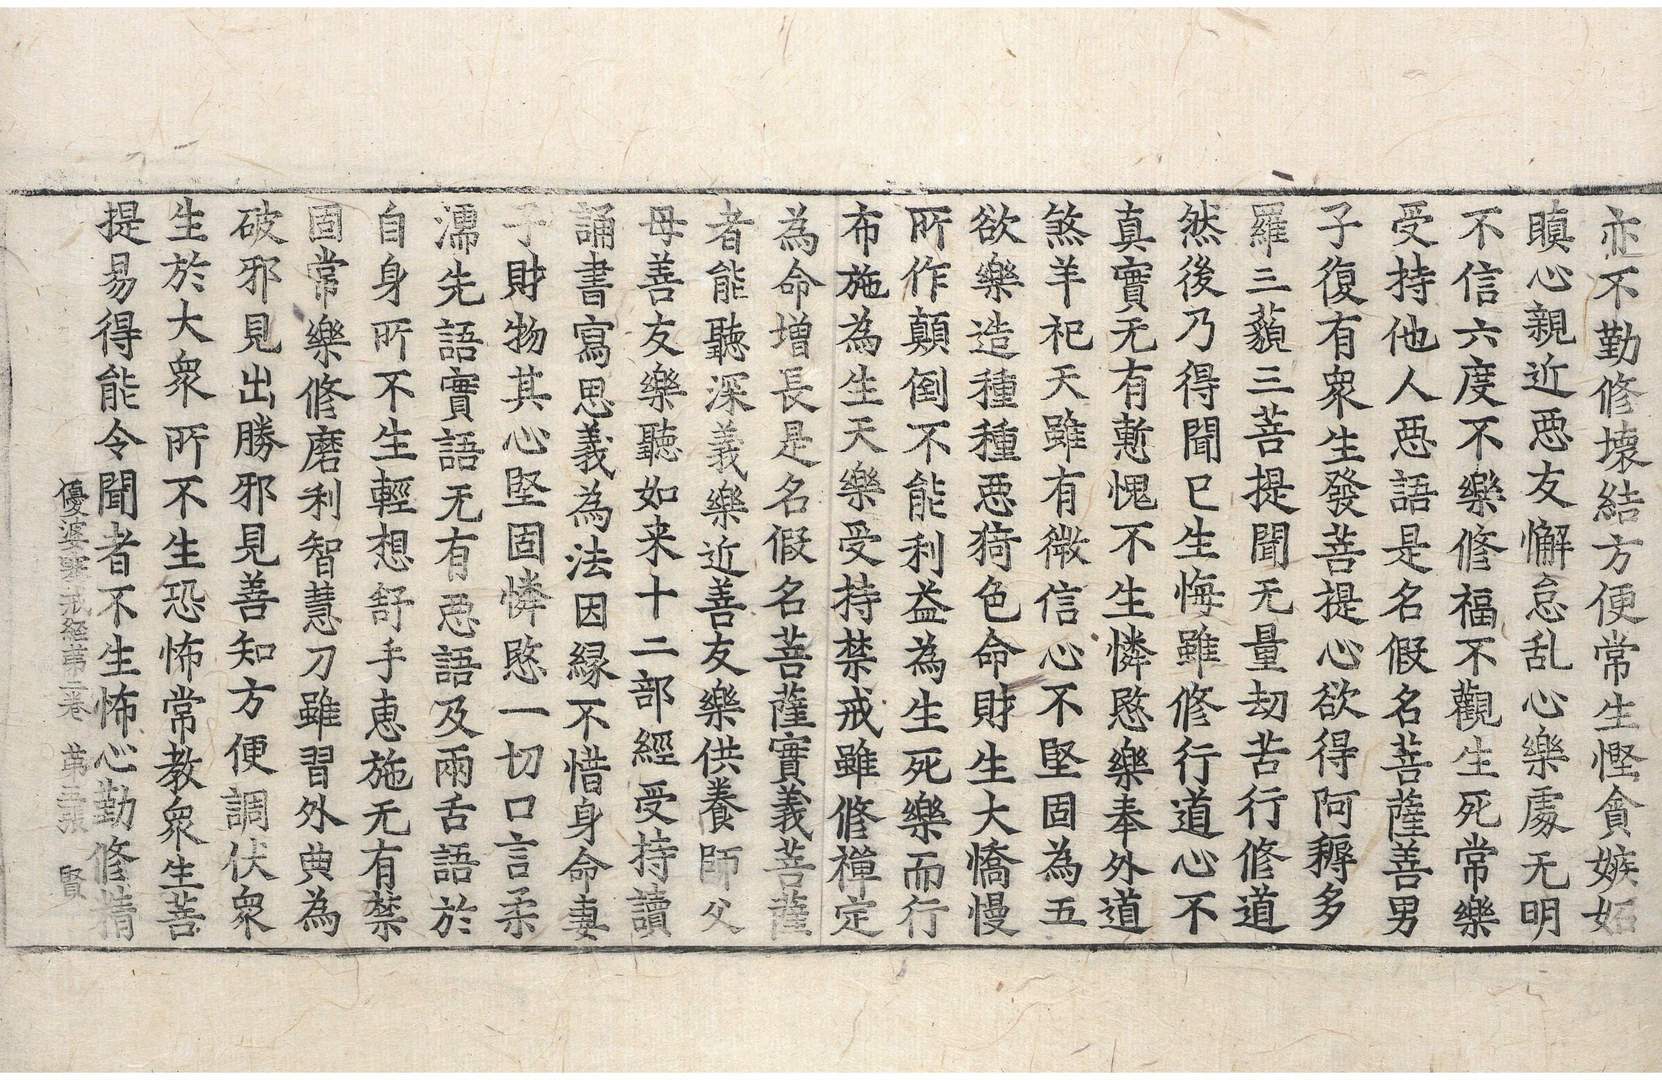 亦不勤修壞結方便常生慳貪嫉妬
瞋心親近惡友懈怠乱心樂處无明
不信六度不樂修福不觀生死常樂
受持他人惡語是名假名菩薩善男
子復有衆生發菩提心欲得阿耨多
羅三藐三菩提聞无量劫苦行修道
然後乃得聞已生悔雖修行道心不
真實无有慙愧不生憐愍樂奉外道
煞羊祀天雖有微信心不堅固為五
欲樂造種種惡猗色命財生大憍慢
所作顛倒不能利益為生死樂而行
布施為生天樂受持禁戒雖修禪定
為命增長是名假名菩薩實義菩薩
者能聽深義樂近善友樂供養師父
母善友樂聽如来十二部經受持讀
誦書寫思義為法因緣不惜身命妻
子財物其心堅固憐愍一切口言柔
濡先語實語无有惡語及兩舌語於
自身所不生輕想舒手惠施无有禁
固常樂修磨利智慧刀雖習外典為
破邪見出勝邪見善知方便調伏衆
生於大衆所不生恐怖常教衆生菩
提易得能令聞者不生怖心勤修精
優婆塞戒経苐二卷　苐三張　賢